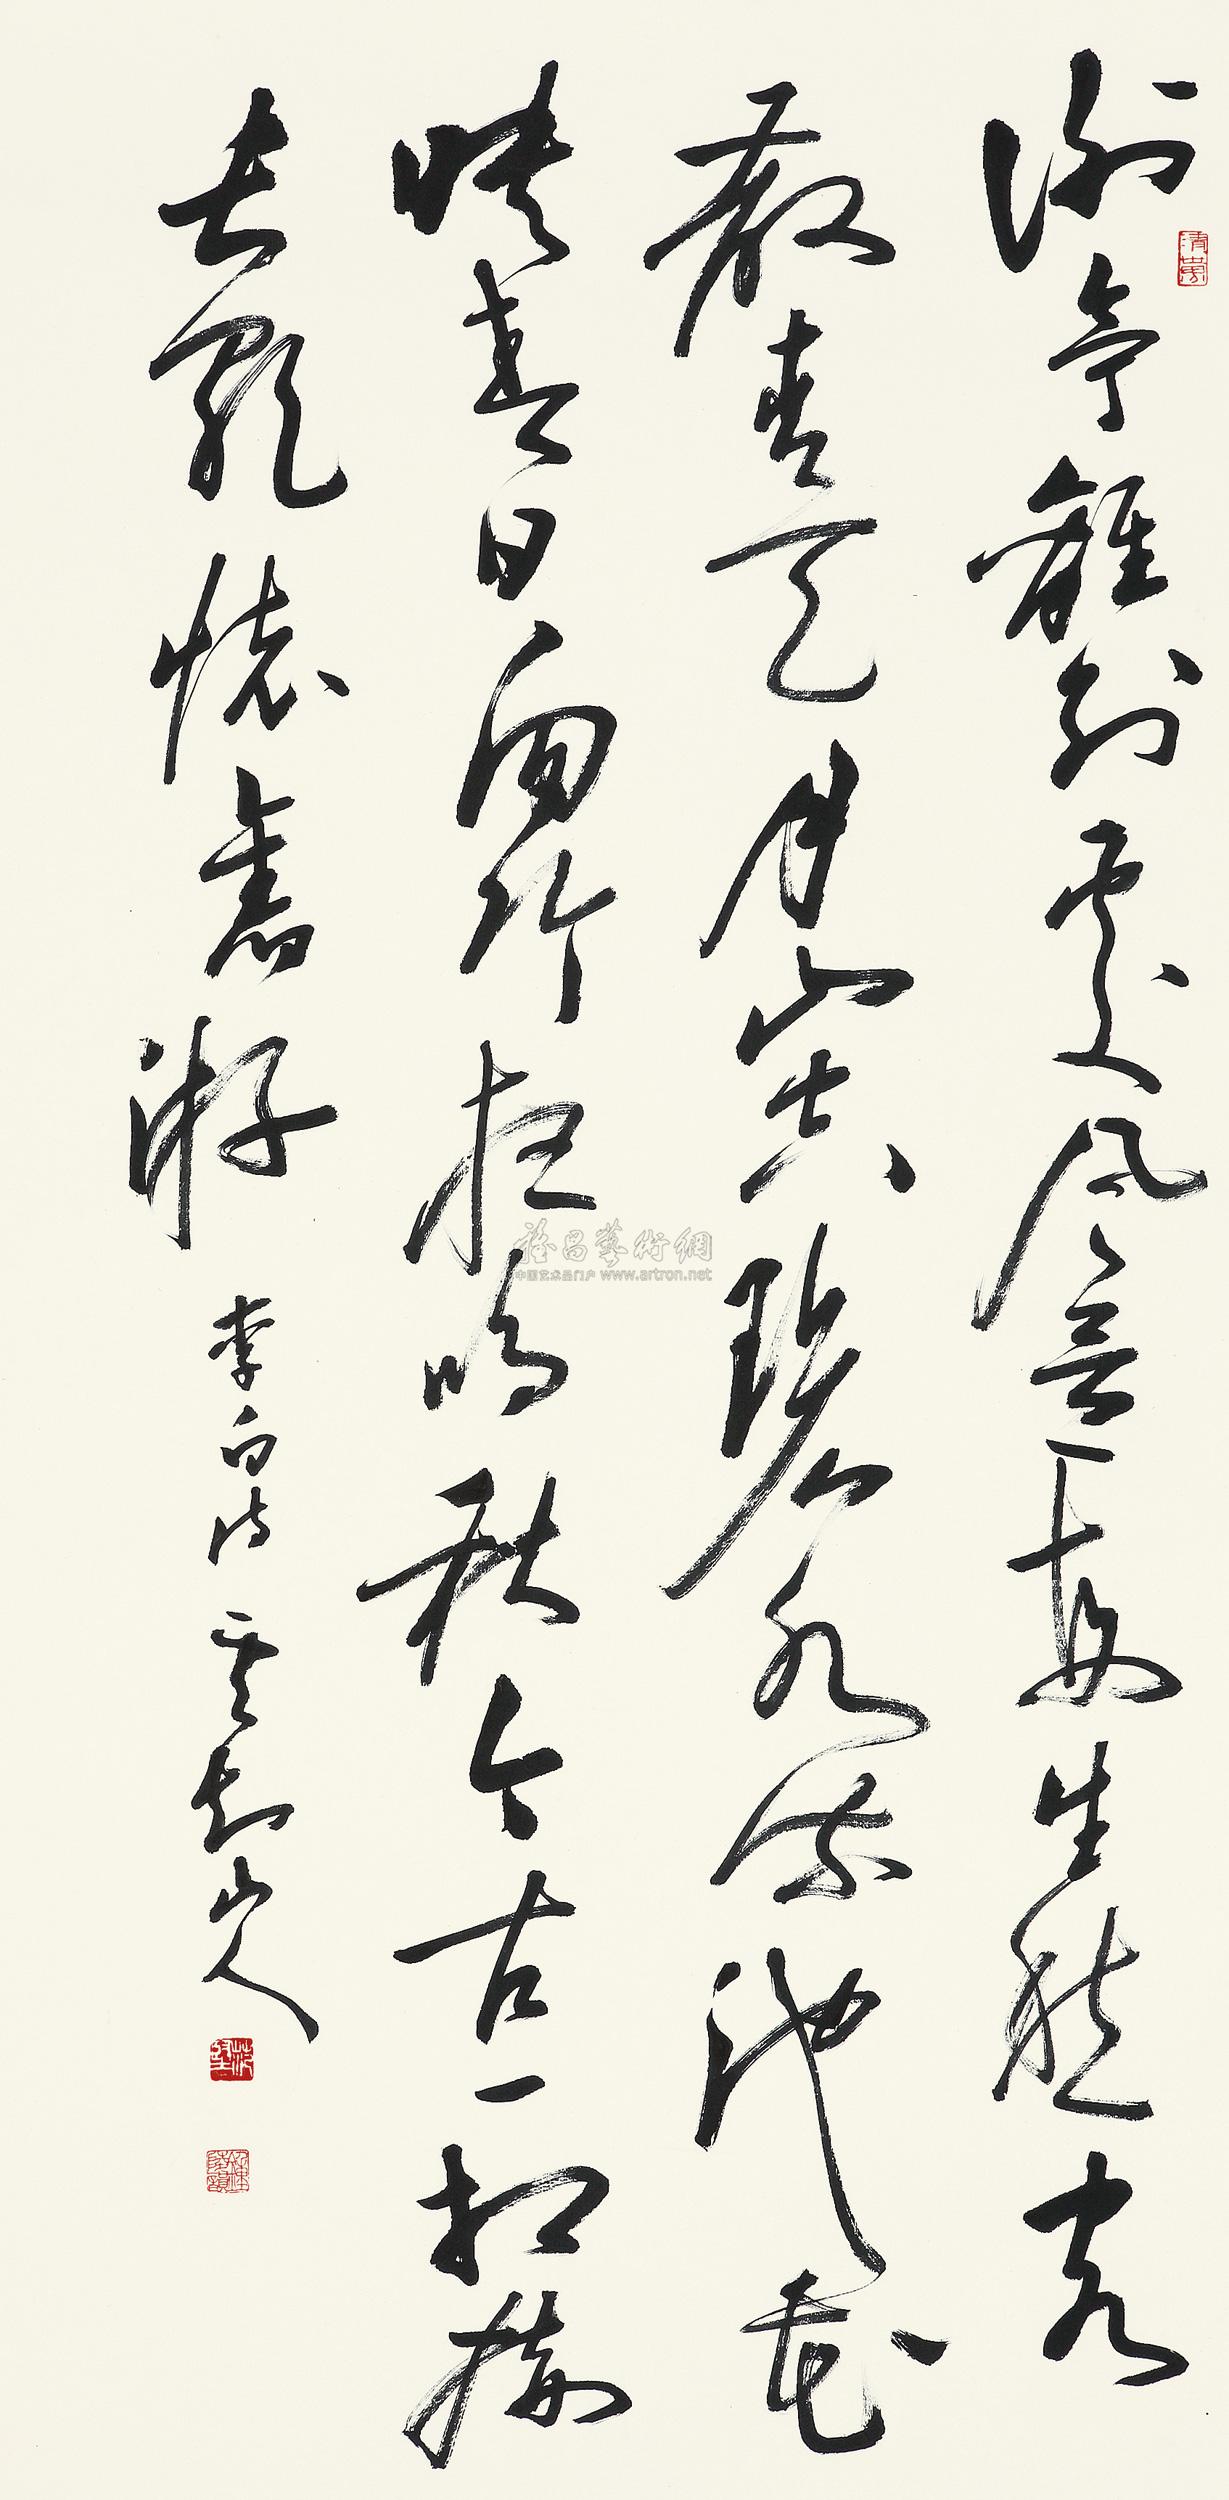 謝亭離別處風景每生愁客
散青天月山空碧水流池花
映春日窗竹夜鳴秋今古一相接
長歌懷舊游
李白诗 山人
雅昌藝術網
中国艺术品门户 www.artron.net